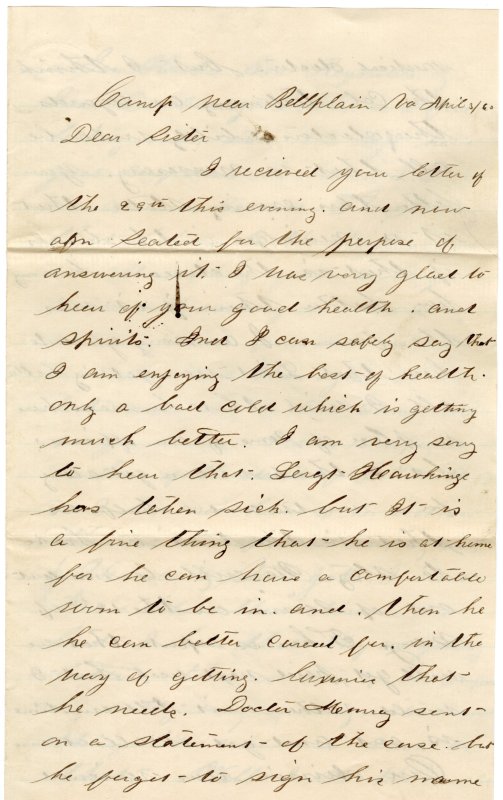 Camp near Bellplain Va April 3/63
Dear Sister
I recieved your letter of
the 29th this evening. and now
am Seated for the perpose of
answering it. I was very glad to
hear of your good health. and
spirits. And I can safely say that
I am enjoying the best of health.
only a bad cold which is getting
much better. I am very sory
to hear that Sergt Hawkings
has taken sick. but It is
a fine thing that he is at home
for he can have a comfortable
room to be in. and. then he
he can better cared for. in the
way of getting. luxuries that
he needs. Docter Henrey sent
on a statement of the case. but
he forgot to sign his name